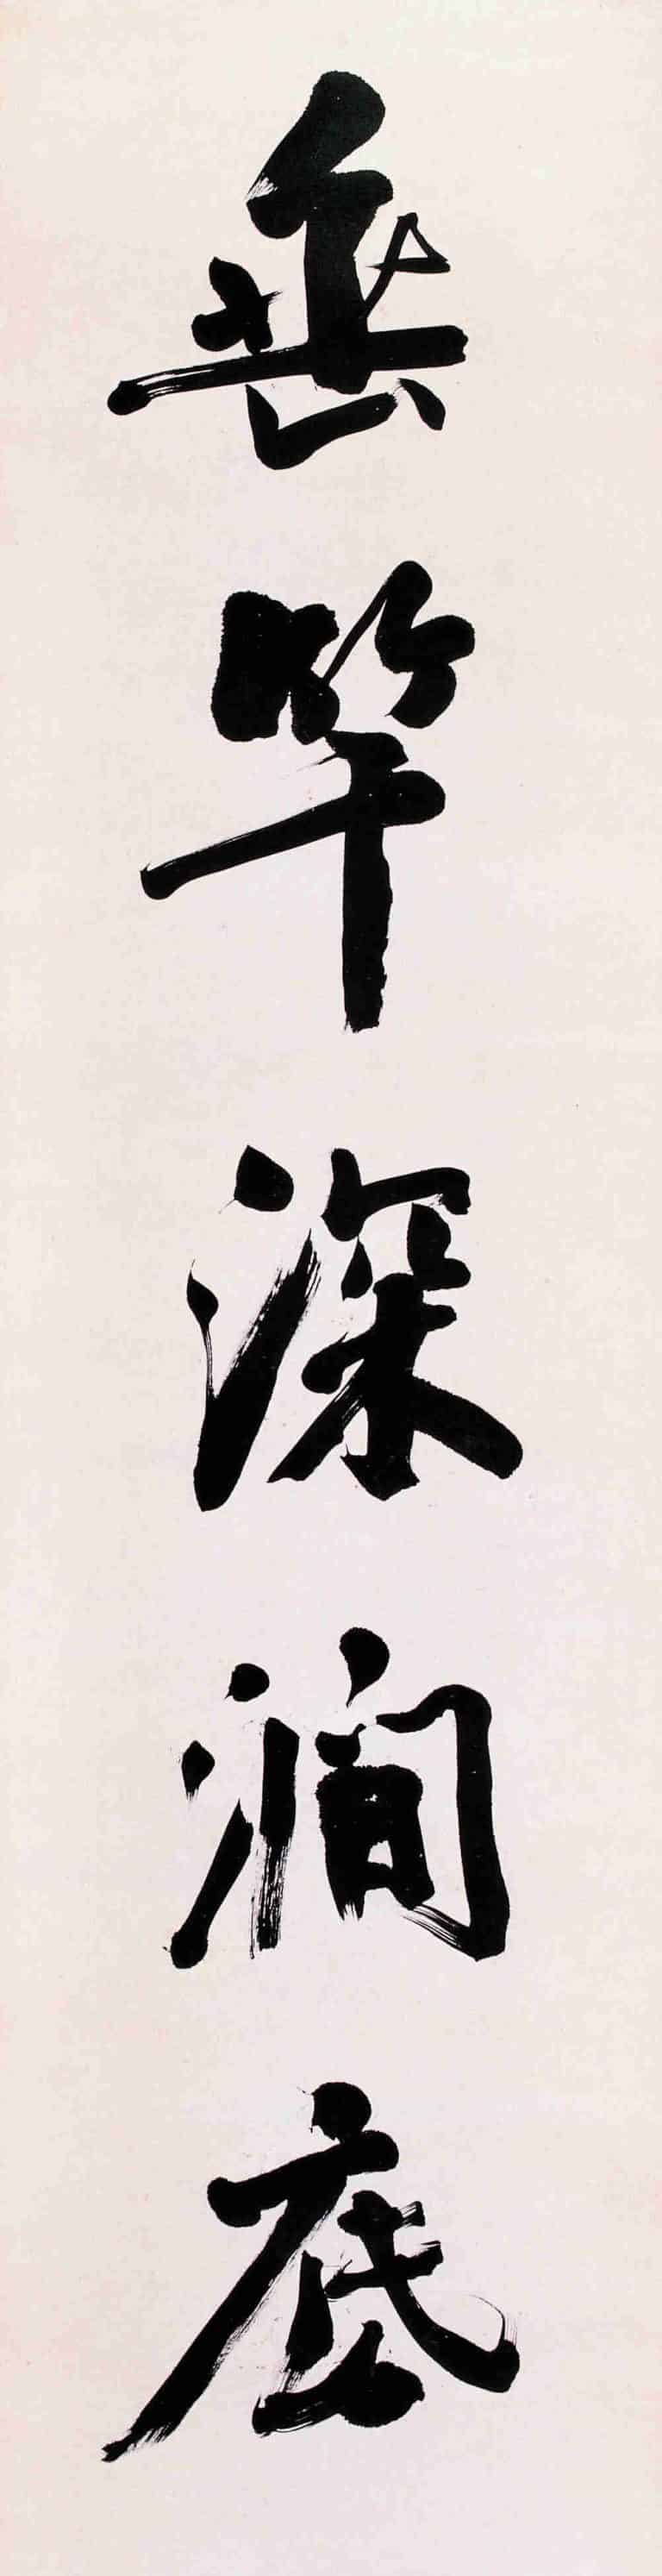 垂竿深澗底